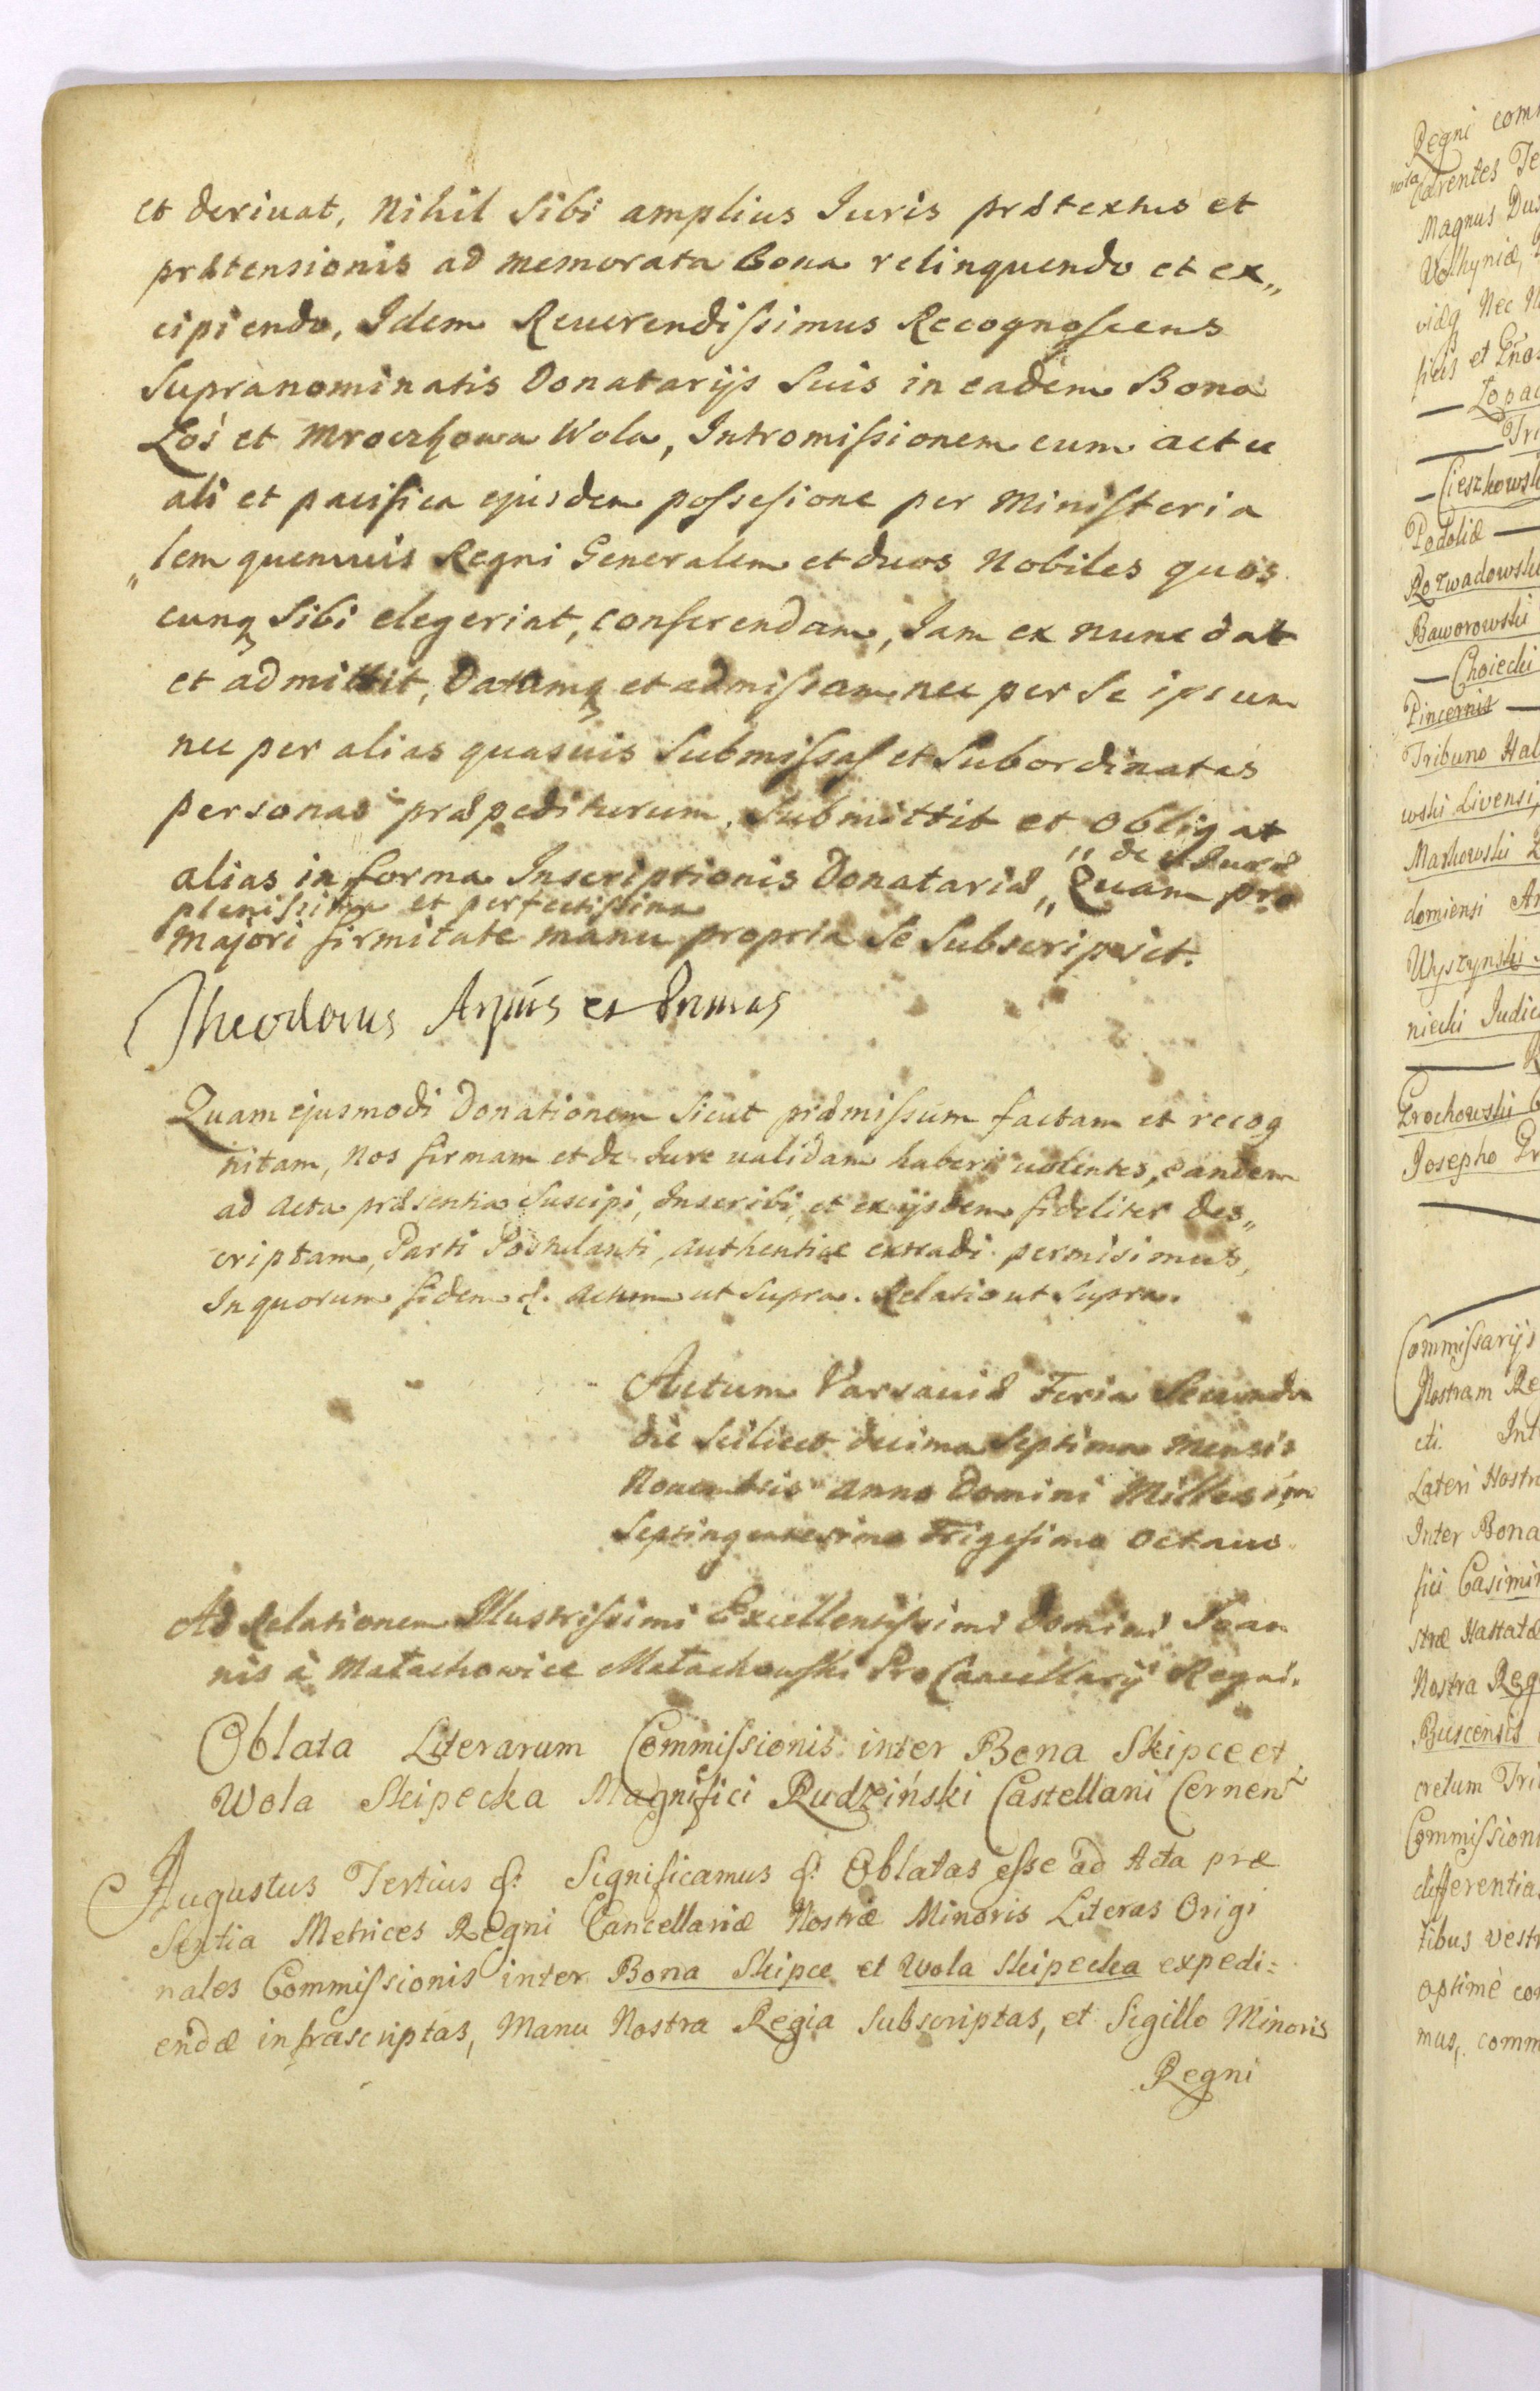 et derivat, Nihil Sibi amplius Juris prætextus et
prætensionis ad memorata Bona relinquendo et ex„
cipiendo, Idem Reverendissimus Recognoscens
Supranominatis Donatarijs Suis in eadem Bona
Łoś et Mroczkowa Wola, Intromissionem cum actu
ali et pacifica ejusdem possesione per Ministeria
„lem quemvis Regni Generalem et duos Nobiles quos
cunq Sibi elegerint, conferendam, Jam ex nunc dat
et admittit, Datamq et admissam nec per Se ipsum
nec per alias quasvis Submissas et Subordinatas
personas præpediturum, Submittit et obligat
alias in forma Inscriptionis Donatariæ „ de Juræ „ Quam pro
plenissima et perfectissima
majori firmitate manu propria Se Subscripsit.
Theodorus Arpūs et Primas
Quam ejusmodi Donationem Sicut præmissum factam et recog
nitam, Nos firmam et de Jure validam haberi volentes, eandem
ad Acta præsentia Suscipi, Inscribi, et ex ijsdem fideliter des„
criptam, Parti Postulanti, authentice extradi permisimus,
In quorum fidem &. Actum ut Supra. Relatio ut Supra.
Actum Varsaviæ Feria Secunda
die Scilicet decima Septima mensis
Novembris Anno Domini Millesimo
Septingentesimo Trigesimo Octavo.
Ad Relationem Illustrissimi Excellentissimi Domini Joan
nis à Małachowice Małachowski Pro Cancellarij Regni.
Oblata Literarum Commissionis inter Bona Skipce et
Wola Skipecka Magnifici Rudziński Castellani Cernen
Augustus Tertius &. Significamus &. Oblatas esse ad Acta præ
Sentia Metrices Regni Cancellariæ Nostræ Minoris Literas Origi
nales Commissionis inter Bona Skipce et Wola Skipecka expedi=
endæ infrascriptas, Manu Nostra Regia subscriptas, et Sigillo Minoris
Regni
Regni com
nora
carentes Te
Magnus Dux
Volhyniæ,
viæq Nec N
ficis et Gnos
Łopac
Tri
Cieszkowsk
Podoliæ
Rozwadowski
Baworowski
Choiecki
Pincernis
Tribuno Hal
wski Livensi,
Markowski
domiensi
Wyszynski
niecki Judic
Grochowski
Josepho
Commissarijs
Nostram Re
eti. Int
Lateri Nostr
Inter Bona
fici Casimir
stræ Hastatæ
Nostra Reg
Buscensis
cretum Tri
Commission
differentias
tibus vestr
optimè con
mus, comm